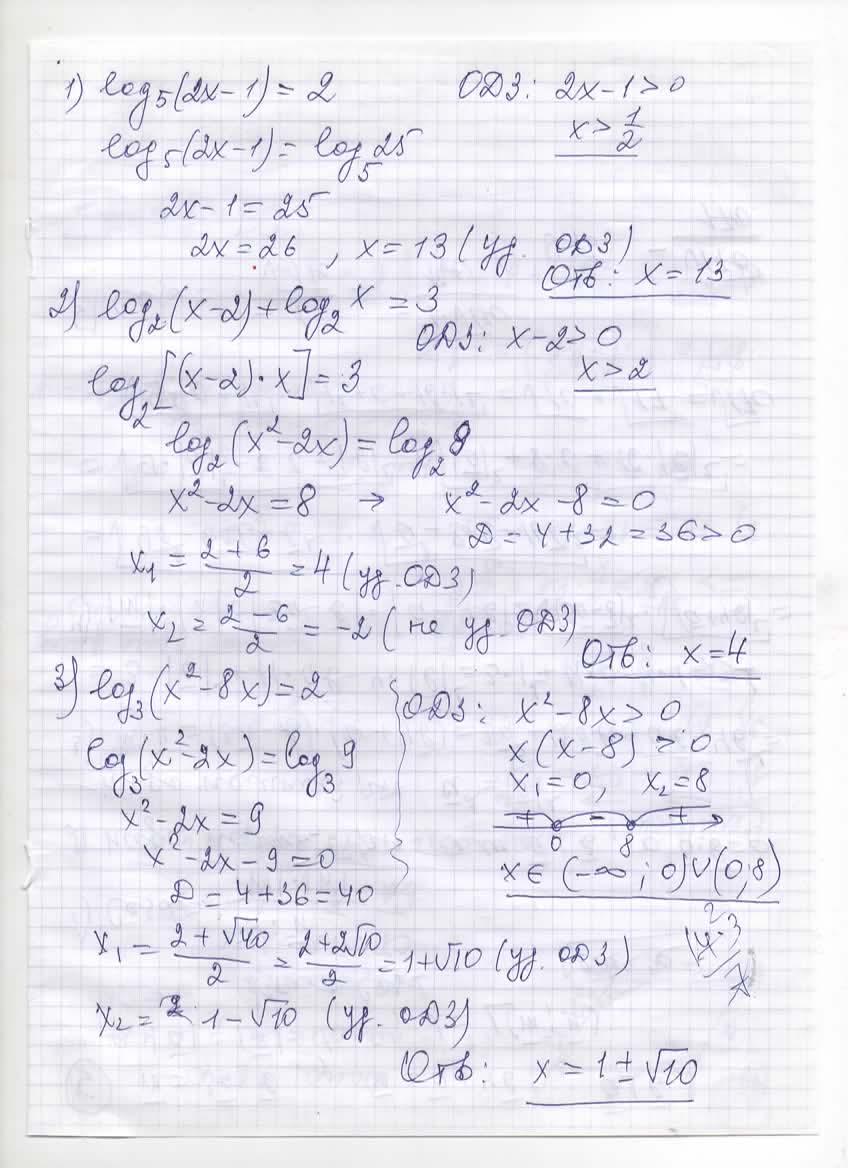 1) log₅(2x-1) = 2 ОДЗ: 2x-1>0
log₅(2x-1) = log₅25 x>1/2
2x-1 = 25
2x = 26 , x = 13 (уд. ОДЗ)
Отв: x = 13
2) log₂(x-2)+log₂x = 3
ОДЗ: x-2>0
log₂[(x-2)·x] = 3 x>2
log₂(x²-2x) = log₂8
x²-2x = 8 → x²-2x-8=0
D = 4+32 = 36>0
x₁ = (2+6)/2 = 4 (уд. ОДЗ)
x₂ = (2-6)/2 = -2 (не уд. ОДЗ)
Отв: x = 4
3) log₃(x²-8x) = 2 ОДЗ: x²-8x>0
x(x-8)>0
log₃(x²-2x) = log₃9
x₁=0, x₂=8
x²-2x = 9
+ - +
0 8
x²-2x-9=0
x∈(-∞;0)∪(0,8)
D = 4+36 = 40
x₁ = (2+√40)/2 = (2+2√10)/2 = 1+√10 (уд. ОДЗ)
x₂ = 1-√10 (уд. ОДЗ)
Отв: x = 1±√10